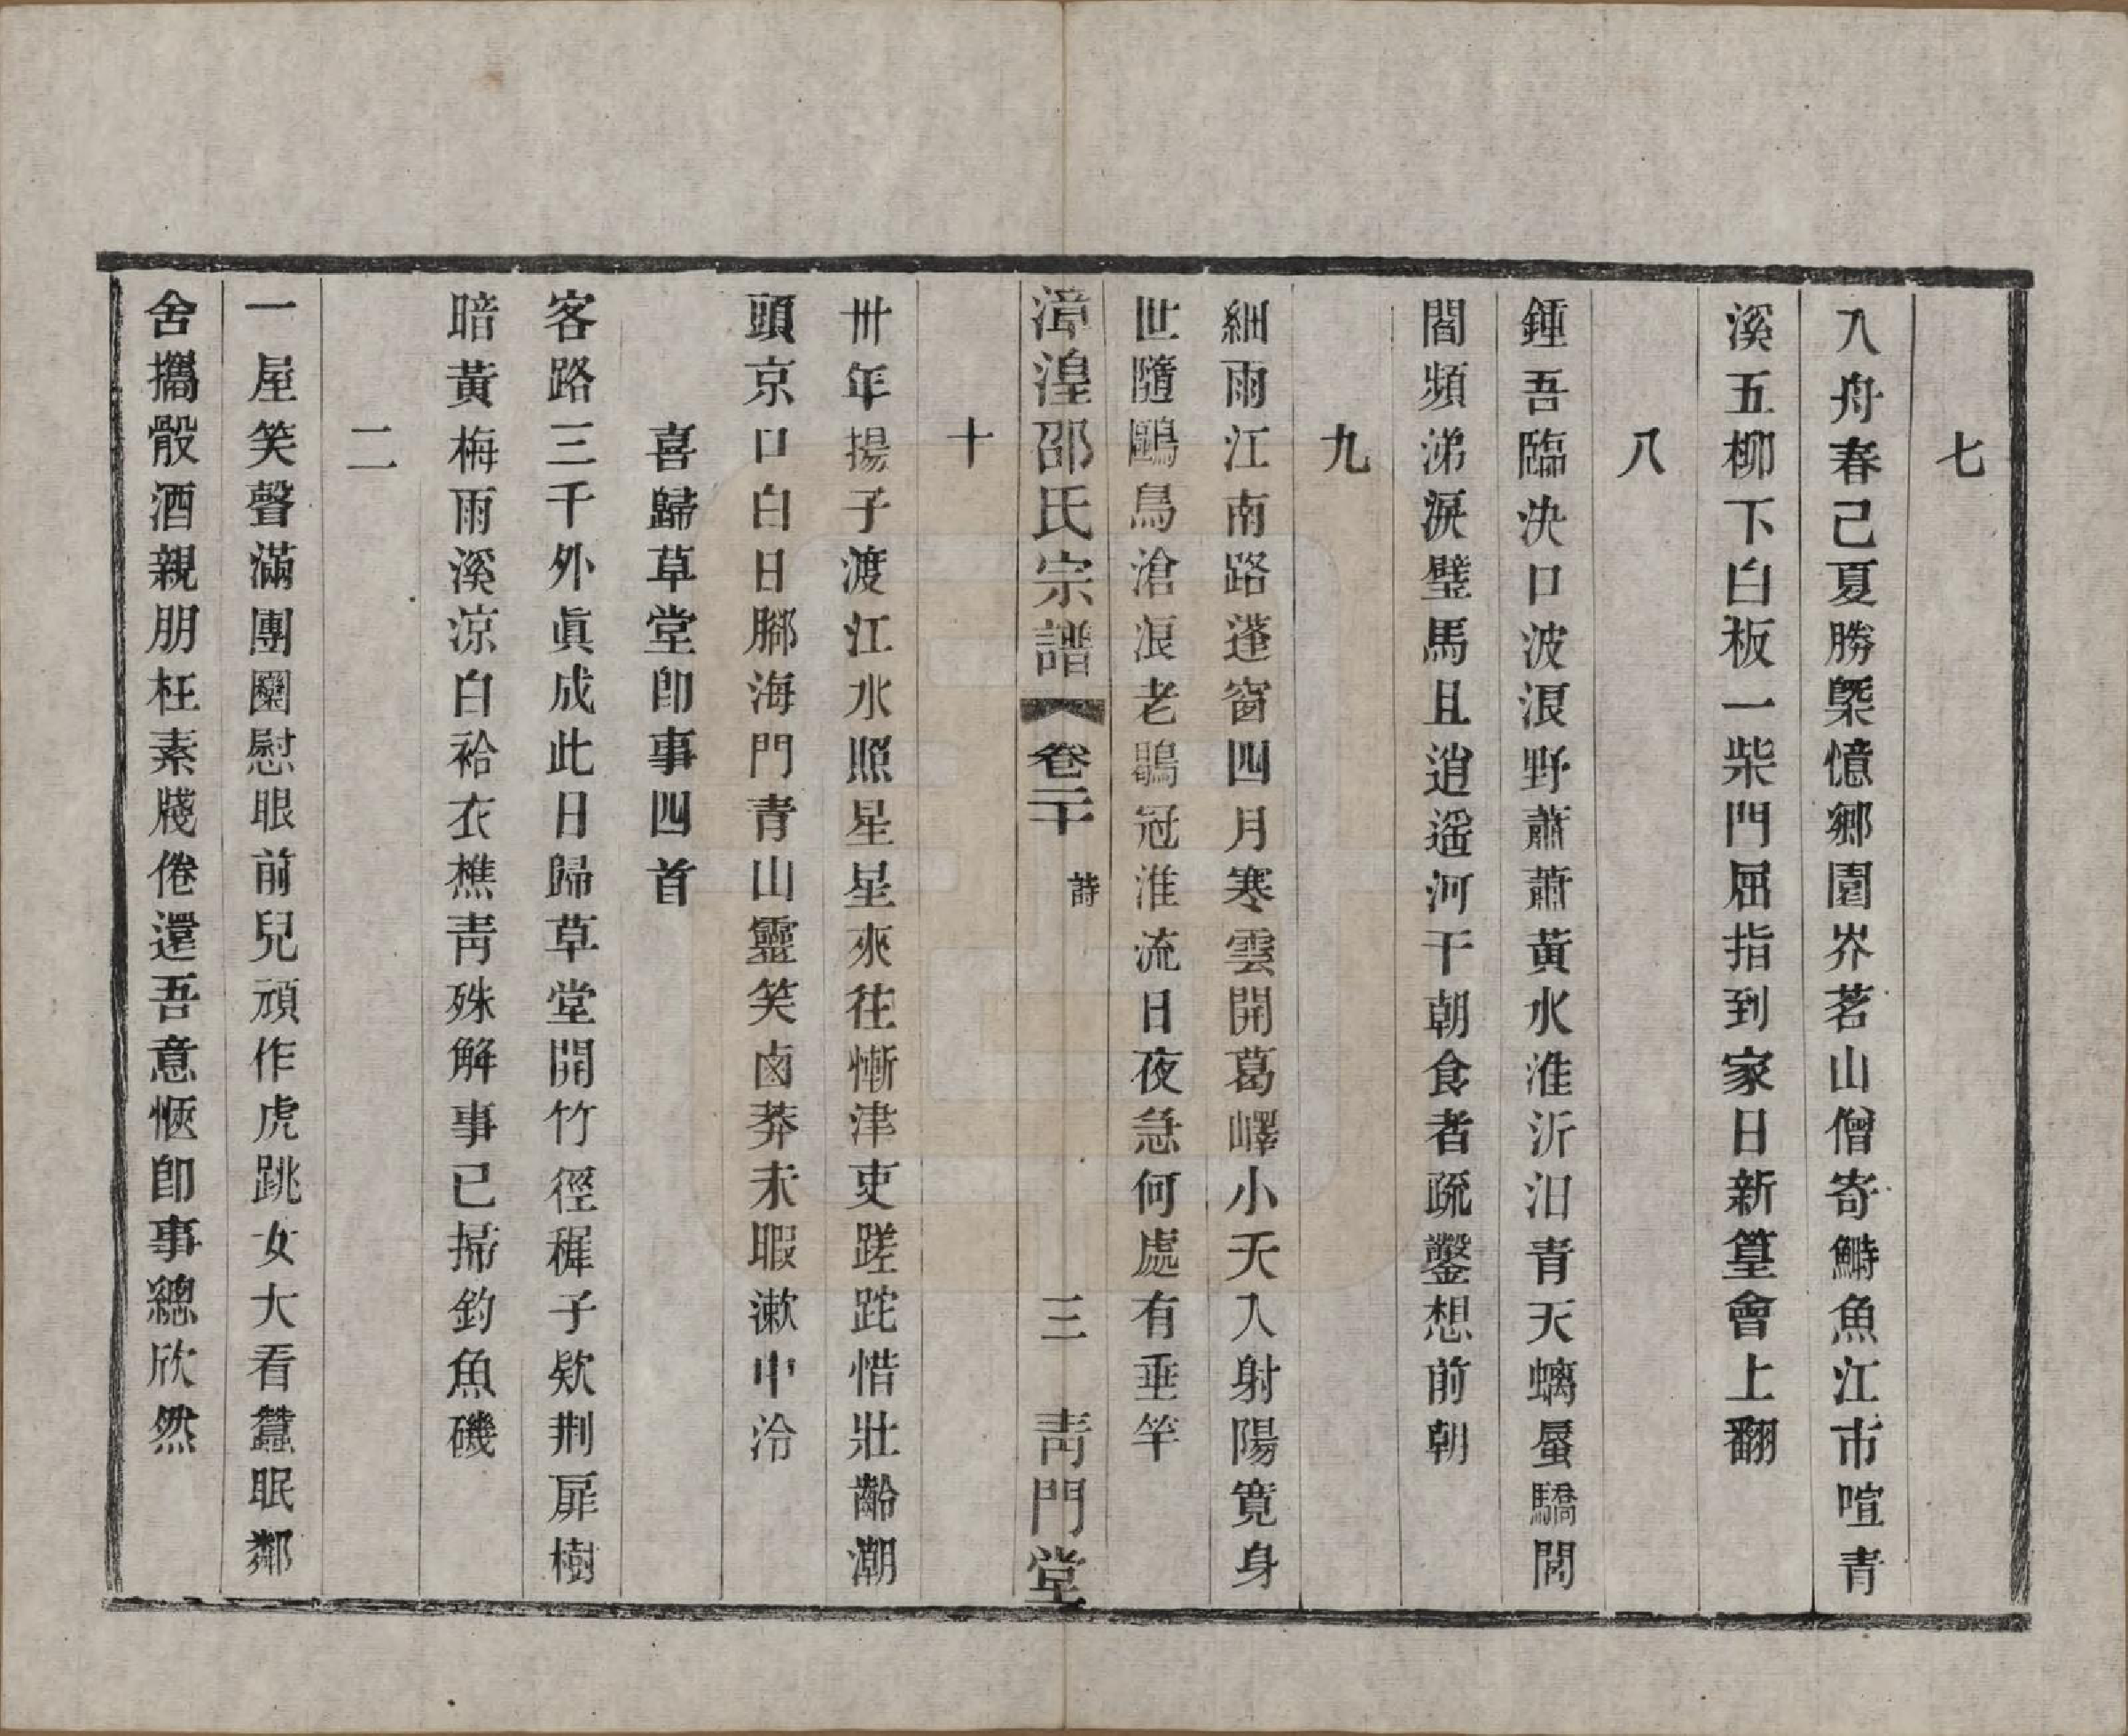 七
入舟春己夏勝槩憶鄉園岕茗山僧寄鰣魚江市喧青
溪五柳下白板一柴門屈指到家日新篁會上翻
八
鍾吾臨決口波浪野蕭蕭黃水淮沂汩青天螭蜃驕閭
閻頻涕淚璧馬且逍遥河干朝食者疏鑿想前朝
九
細雨江南路蓬窗四月寒雲開葛嶧小天入射陽寬身
世隨鷗鳥滄浪老鶡冠淮流日夜急何處有垂竿
漳湟邵氏宗譜 卷二十 詩 三 青門堂
十
卅年揚子渡江水照星星來往慚津吏蹉跎惜壯齡潮
頭京口白日腳海門青山靈笑鹵莽未暇漱中泠
喜歸草堂卽事四首
客路三千外眞成此日歸草堂開竹徑穉子欵荆扉樹
暗黃梅雨溪凉白袷衣樵靑殊解事已掃釣魚磯
二
一屋笑聲滿團圞慰眼前兒頑作虎跳女大看蠶眠鄰
舍攜殽酒親朋枉素牋倦還吾意愜卽事總欣然